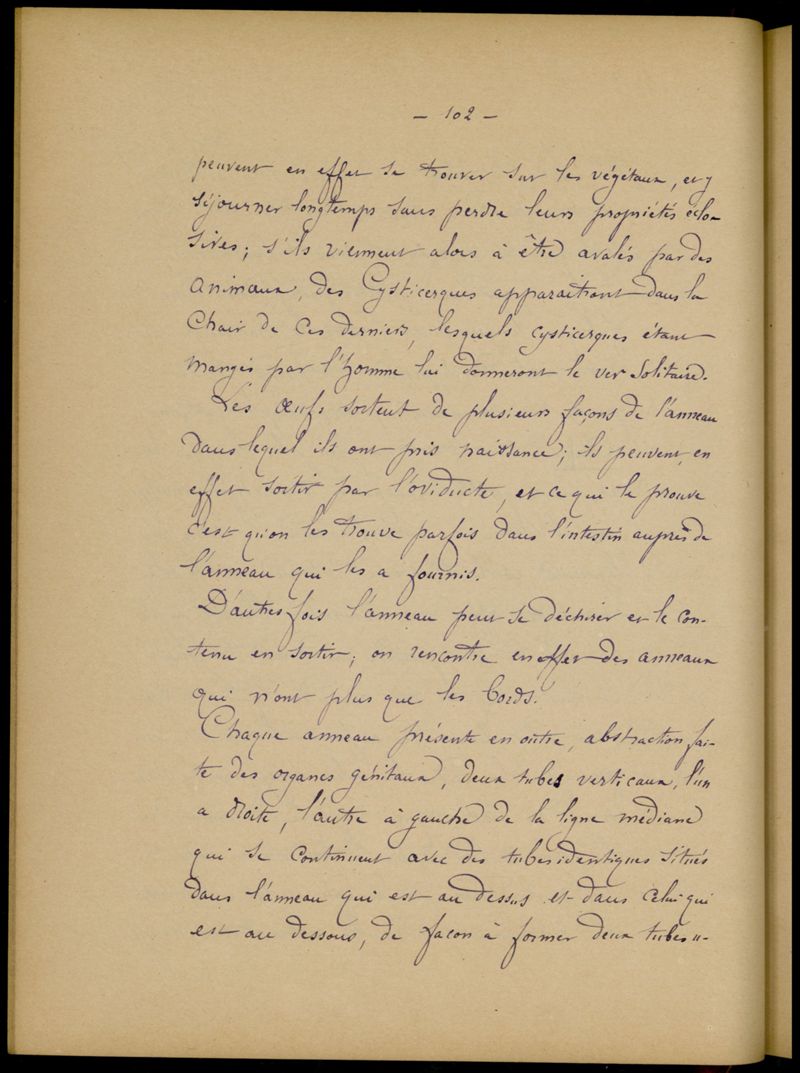 — 102 —
peuvent en effet se trouver sur les végétaux, et y
séjourner longtemps sans perdre leurs propriétés éclo-
sives; s'ils viennent alors à être avalés par des
animaux, des Cysticerques apparaitront dans la
Chair de ces derniers, lesquels cysticerques étant
mangés par l'homme lui donneront le ver Solitaire.
Les œufs sortent de plusieurs façons de l'anneau
dans lequel ils ont pris naissance; ils peuvent en
effet sortir par l'oviducte, et ce qui le prouve
c'est qu'on les trouve parfois dans l'intestin auprès de
l'anneau qui les a fournis.
D'autres fois l'anneau peut se déchirer et le con-
tenu en sortir; on rencontre en effet des anneaux
qui n'ont plus que les bords.
Chaque anneau présente en outre, abstraction fai-
te des organes génitaux, deux tubes verticaux, l'un
a droite, l'autre à gauche de la ligne médiane
qui se continuent avec des tubes identiques situés
dans l'anneau qui est au dessus et dans celui qui
est au dessous, de façon à former deux tubes u-